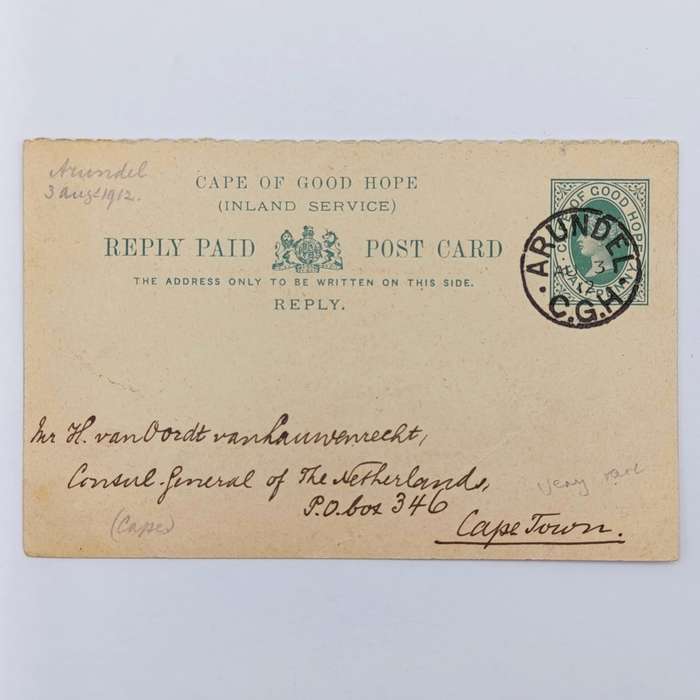 Arundel
3 Aug 1912.
CAPE OF GOOD HOPE
(INLAND SERVICE)
REPLY PAID POST CARD
THE ADDRESS ONLY TO BE WRITTEN ON THIS SIDE.
REPLY.
ARUNDEL
3
C.G.H
OF GOOD HOPE
Mr H. van Oordt van Lauwenrecht,
Consul-General of The Netherlands,
P.O. box 346
Cape Town.
(Cape)
very rare